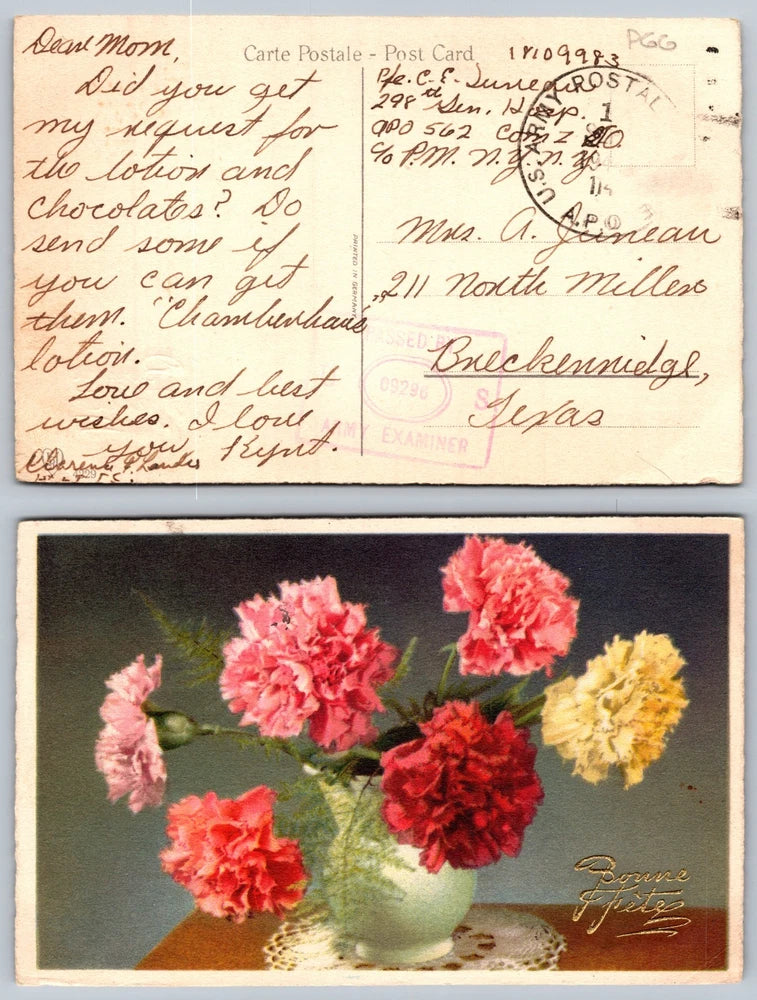 Dear Mom,
Did you get
my request for
the lotion and
chocolates? Do
send some if
you can get
them. "Chamberlain's
lotion.
Love and best
wishes. I love
you Kynt.
4929
Carte Postale - Post Card
PRINTED IN GERMANY
PGG
18109983
Pfc. C. E. Juneau
298th Gen. Hosp.
APO 562 Com Z
c/o P.M. N.Y. N.Y.
U.S. ARMY POSTAL
1
A.P.O.
Mrs. A. Juneau
211 North Miller
Breckenridge,
Texas
PASSED BY
09296 S
ARMY EXAMINER
Bonne
Fête